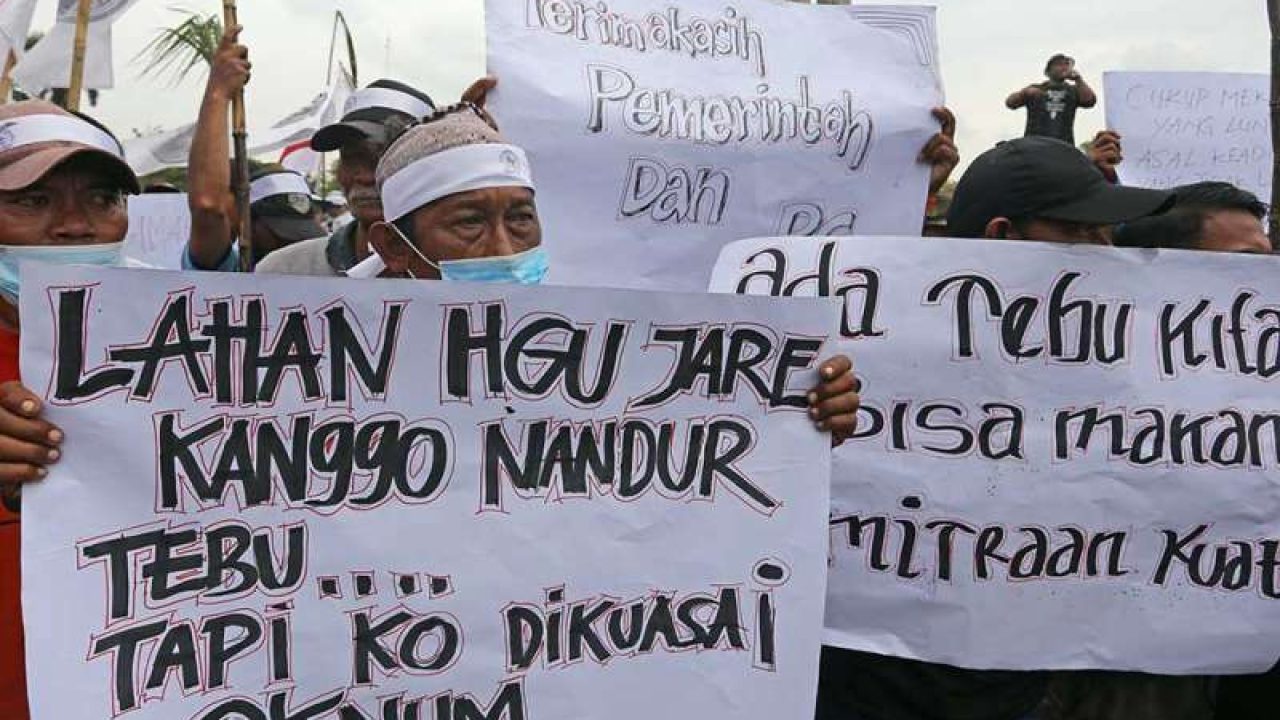 Terimakasih
Pemerintah
Dan
CUKUP MEK
YANG LUN
ASAL KEAD
LAHAN HGU JARE
KANggo NANDUR
TEBU .....
TAPi KO DiKUASAi
OKNUM
ada Tebu Kita
Bisa makan
mitraan Kuat